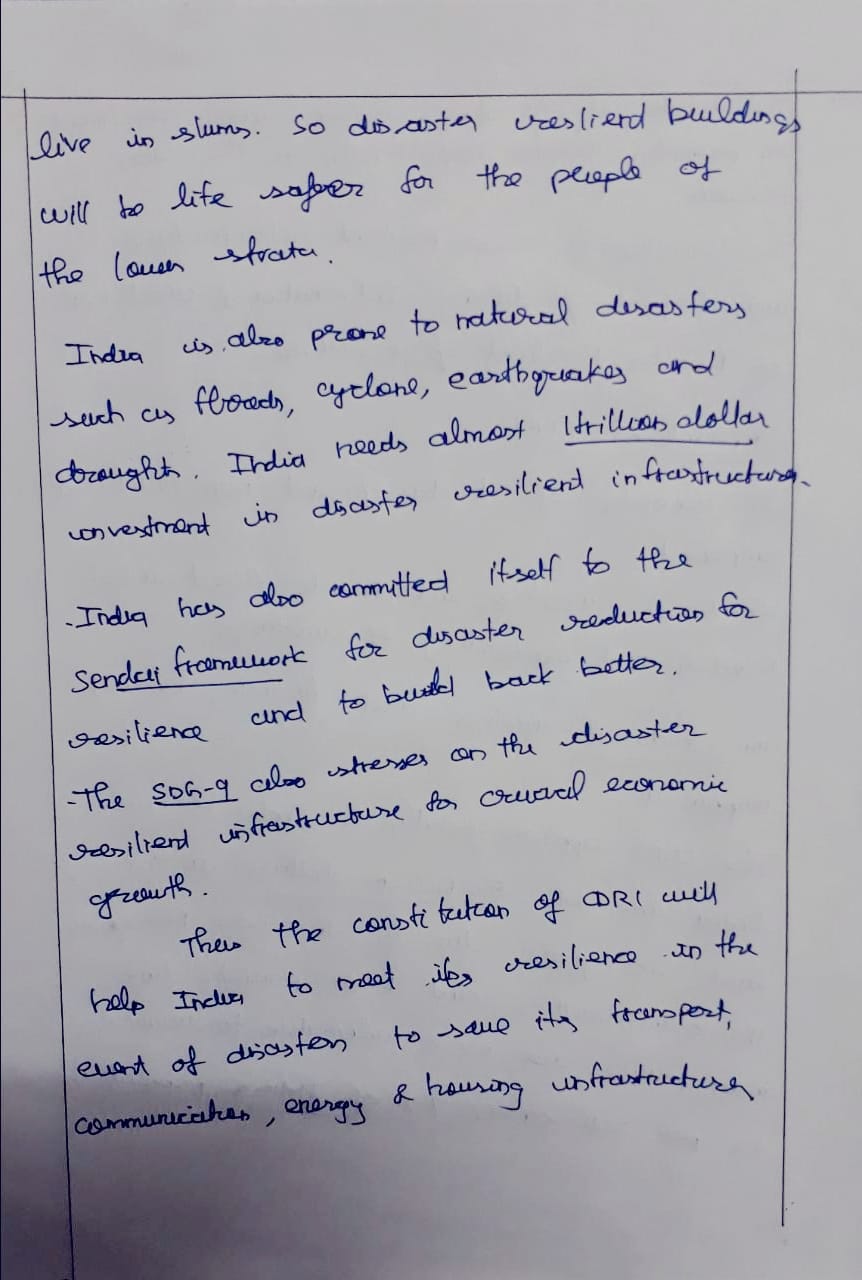 live in slums. So disaster reslient buildings
will be life safer for the people of
the lower strata.
India is also prone to natural disasters
such as floods, cyclone, earthquakes and
drought. India needs almost 1 trillion dollar
investment in disaster resilient infrastructure.
- India has also committed itself to the
Sendai framework for disaster reduction for
resilience and to build back better.
- The SDG-9 also stresses on the disaster
resilient infrastructure for crucial economic
growth.
Thus the constitution of CDRI will
help India to meet its resilience in the
event of disasters to save its transport,
communication, energy & housing infrastructure